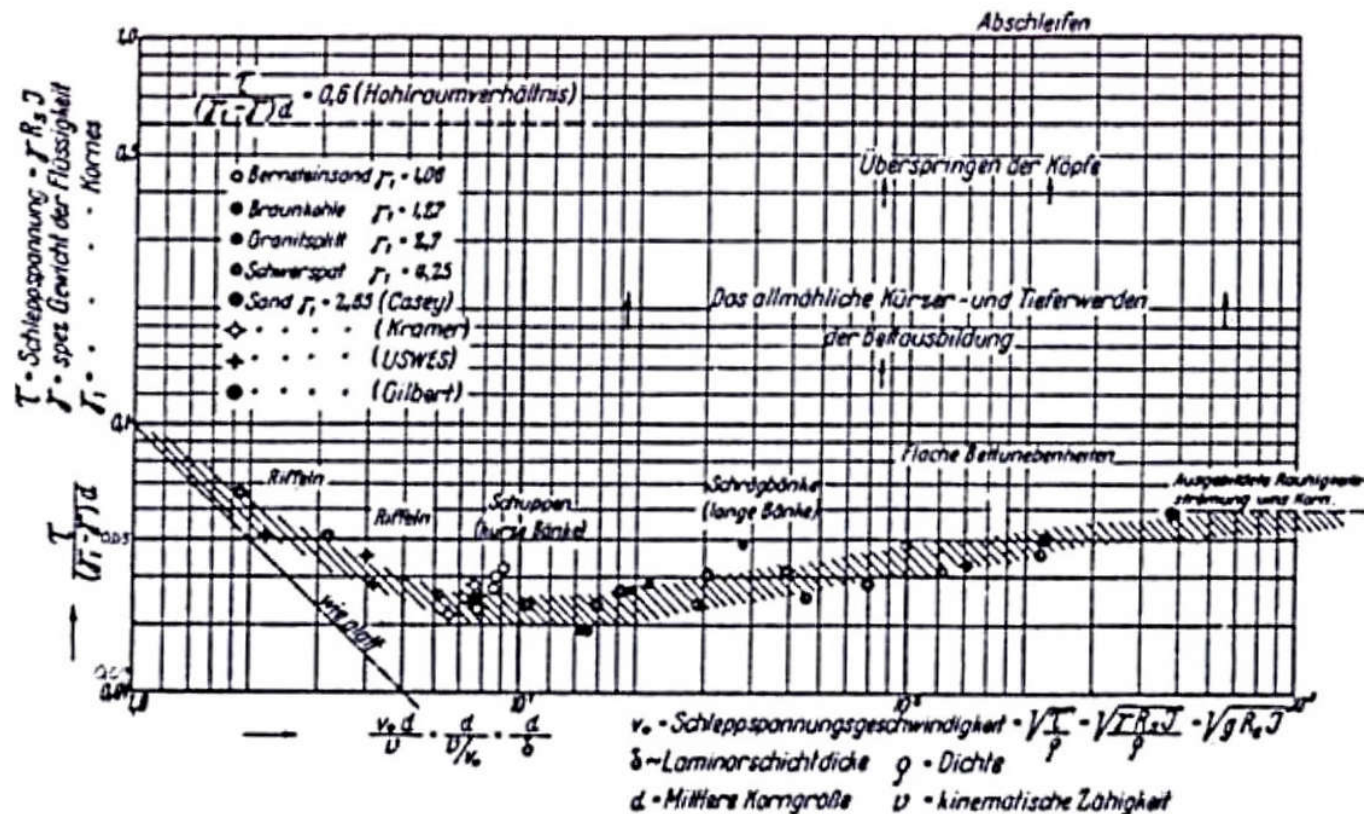 Abschleifen
1.0
τ = Schleppspannung = γ R_s J
γ = spez Gewicht der Flüssigkeit
γ₁ = " " " Kornes
τ / (γ₁-γ)d = 0,6 (Hohlraumverhältnis)
0.5
Überspringen der Köpfe
Bernsteinsand γ₁ = 1,06
Braunkohle γ₁ = 1,27
Granitsplitt γ₁ = 2,7
Schwerspat γ₁ = 4,25
Sand γ₁ = 2,65 (Casey)
" " " " (Kramer)
" " " " (USWES)
" " " " (Gilbert)
Das allmähliche Kürzer- und Tieferwerden
der Bettausbildung
0,1
Flache Bettunebenheiten
Riffeln
Riffeln
Schuppen
(kurze Bänke)
Schrägbänke
(lange Bänke)
Rauhigkeits-
strömung ums Korn.
τ / (γ₁-γ)d
0.05
wie glatt
0.01
1,0
10¹
10²
10³
v* d / υ = d / υ/v* = d / δ
v* = Schleppspannungsgeschwindigkeit = √τ/ρ = √γ R_s J/ρ = √g R_s J
δ ~ Laminarschichtdicke ρ = Dichte
d = Mittlere Korngröße υ = kinematische Zähigkeit